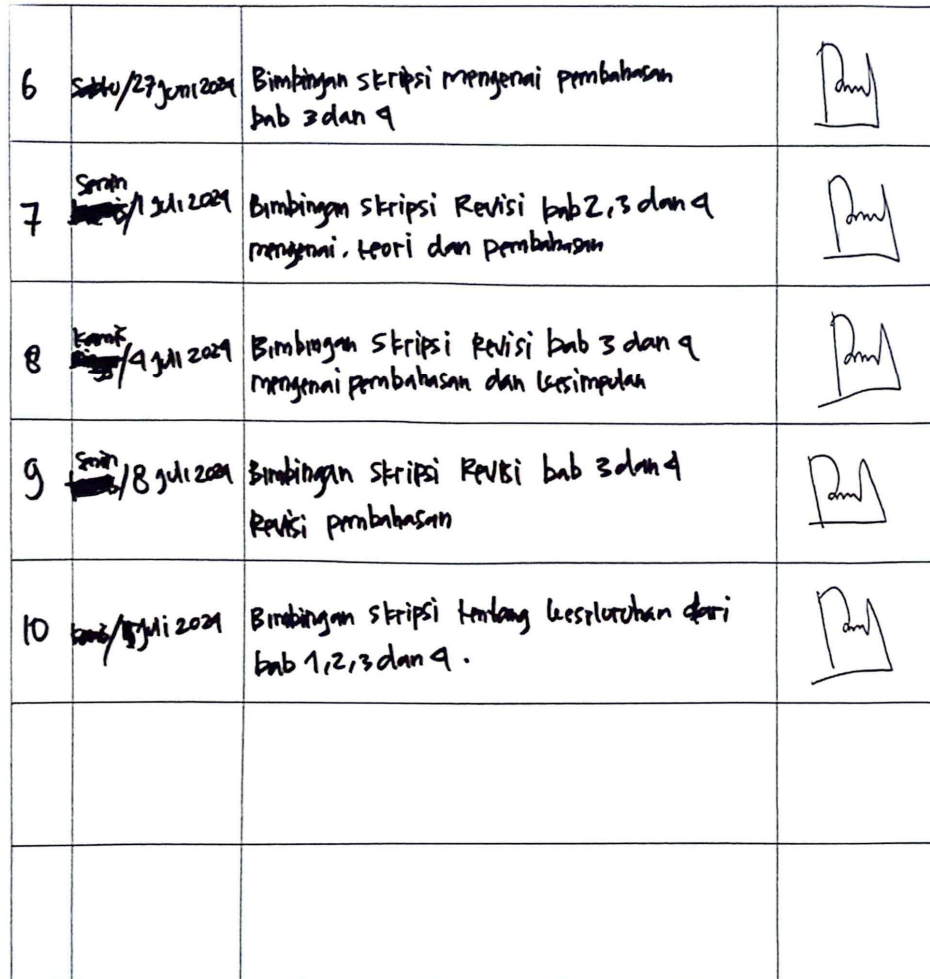 6 Sabtu/27 Juni 2024 Bimbingan skripsi mengenai pembahasan
bab 3 dan 4
Senin
7 /1 Juli 2024 Bimbingan skripsi Revisi bab 2, 3 dan 4
mengenai. teori dan pembahasan
Kamis
8 /4 Juli 2024 Bimbingan Skripsi Revisi bab 3 dan 4
mengenai pembahasan dan kesimpulan
Senin
9 /8 Juli 2024 Bimbingan Skripsi Revisi bab 3 dan 4
Revisi pembahasan
10 Juli 2024 Bimbingan skripsi tentang keseluruhan dari
bab 1,2,3 dan 4.